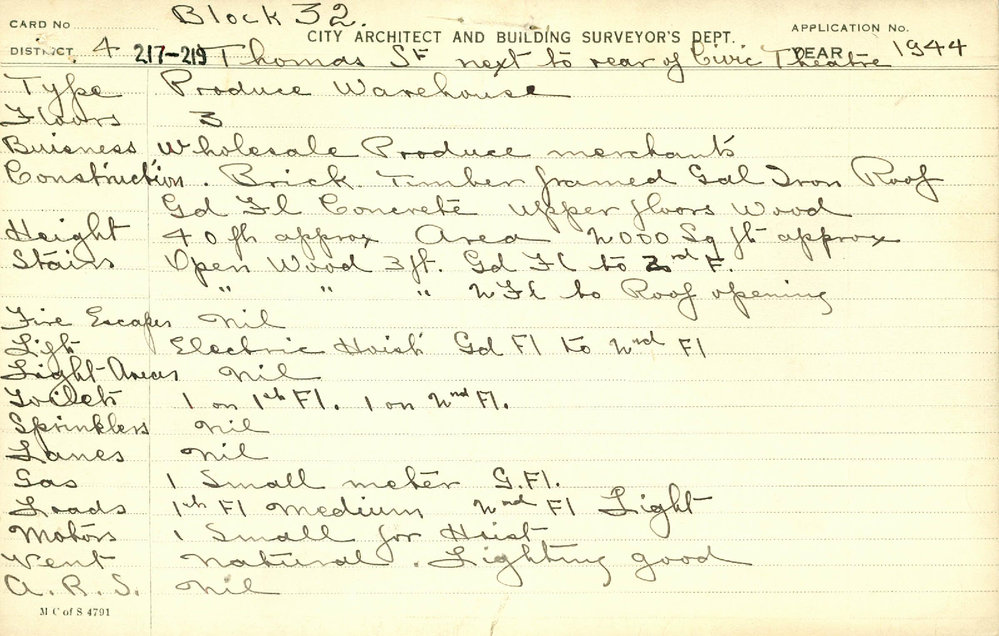 Block 32.
CARD No
CITY ARCHITECT AND BUILDING SURVEYOR'S DEPT.
APPLICATION No.
DISTRICT 4 217-219 Thomas St next to rear of Civic Theatre YEAR 1944
Type Produce Warehouse
Floors 3
Buisness Wholesale Produce merchants
Construction. Brick. Timber framed Gal Iron Roof
Gd Fl Concrete upper floors Wood
Height 40 ft approx Area 2000 Sq ft approx
Stairs Open Wood 3 ft. Gd Fl to 2nd F.
" " " 2 Fl to Roof opening
Fire Escapes Nil
Lift Electric Hoist Gd Fl to 2nd Fl
Light Areas Nil
Toilets 1 on 1st Fl. 1 on 2nd Fl.
Sprinklers Nil
Lanes Nil
Gas 1 Small meter G.Fl.
Loads 1st Fl Medium 2nd Fl Light
Motors 1 Small for Hoist
Vent Natural. Lighting good
A.R.S. Nil
M C of S 4791